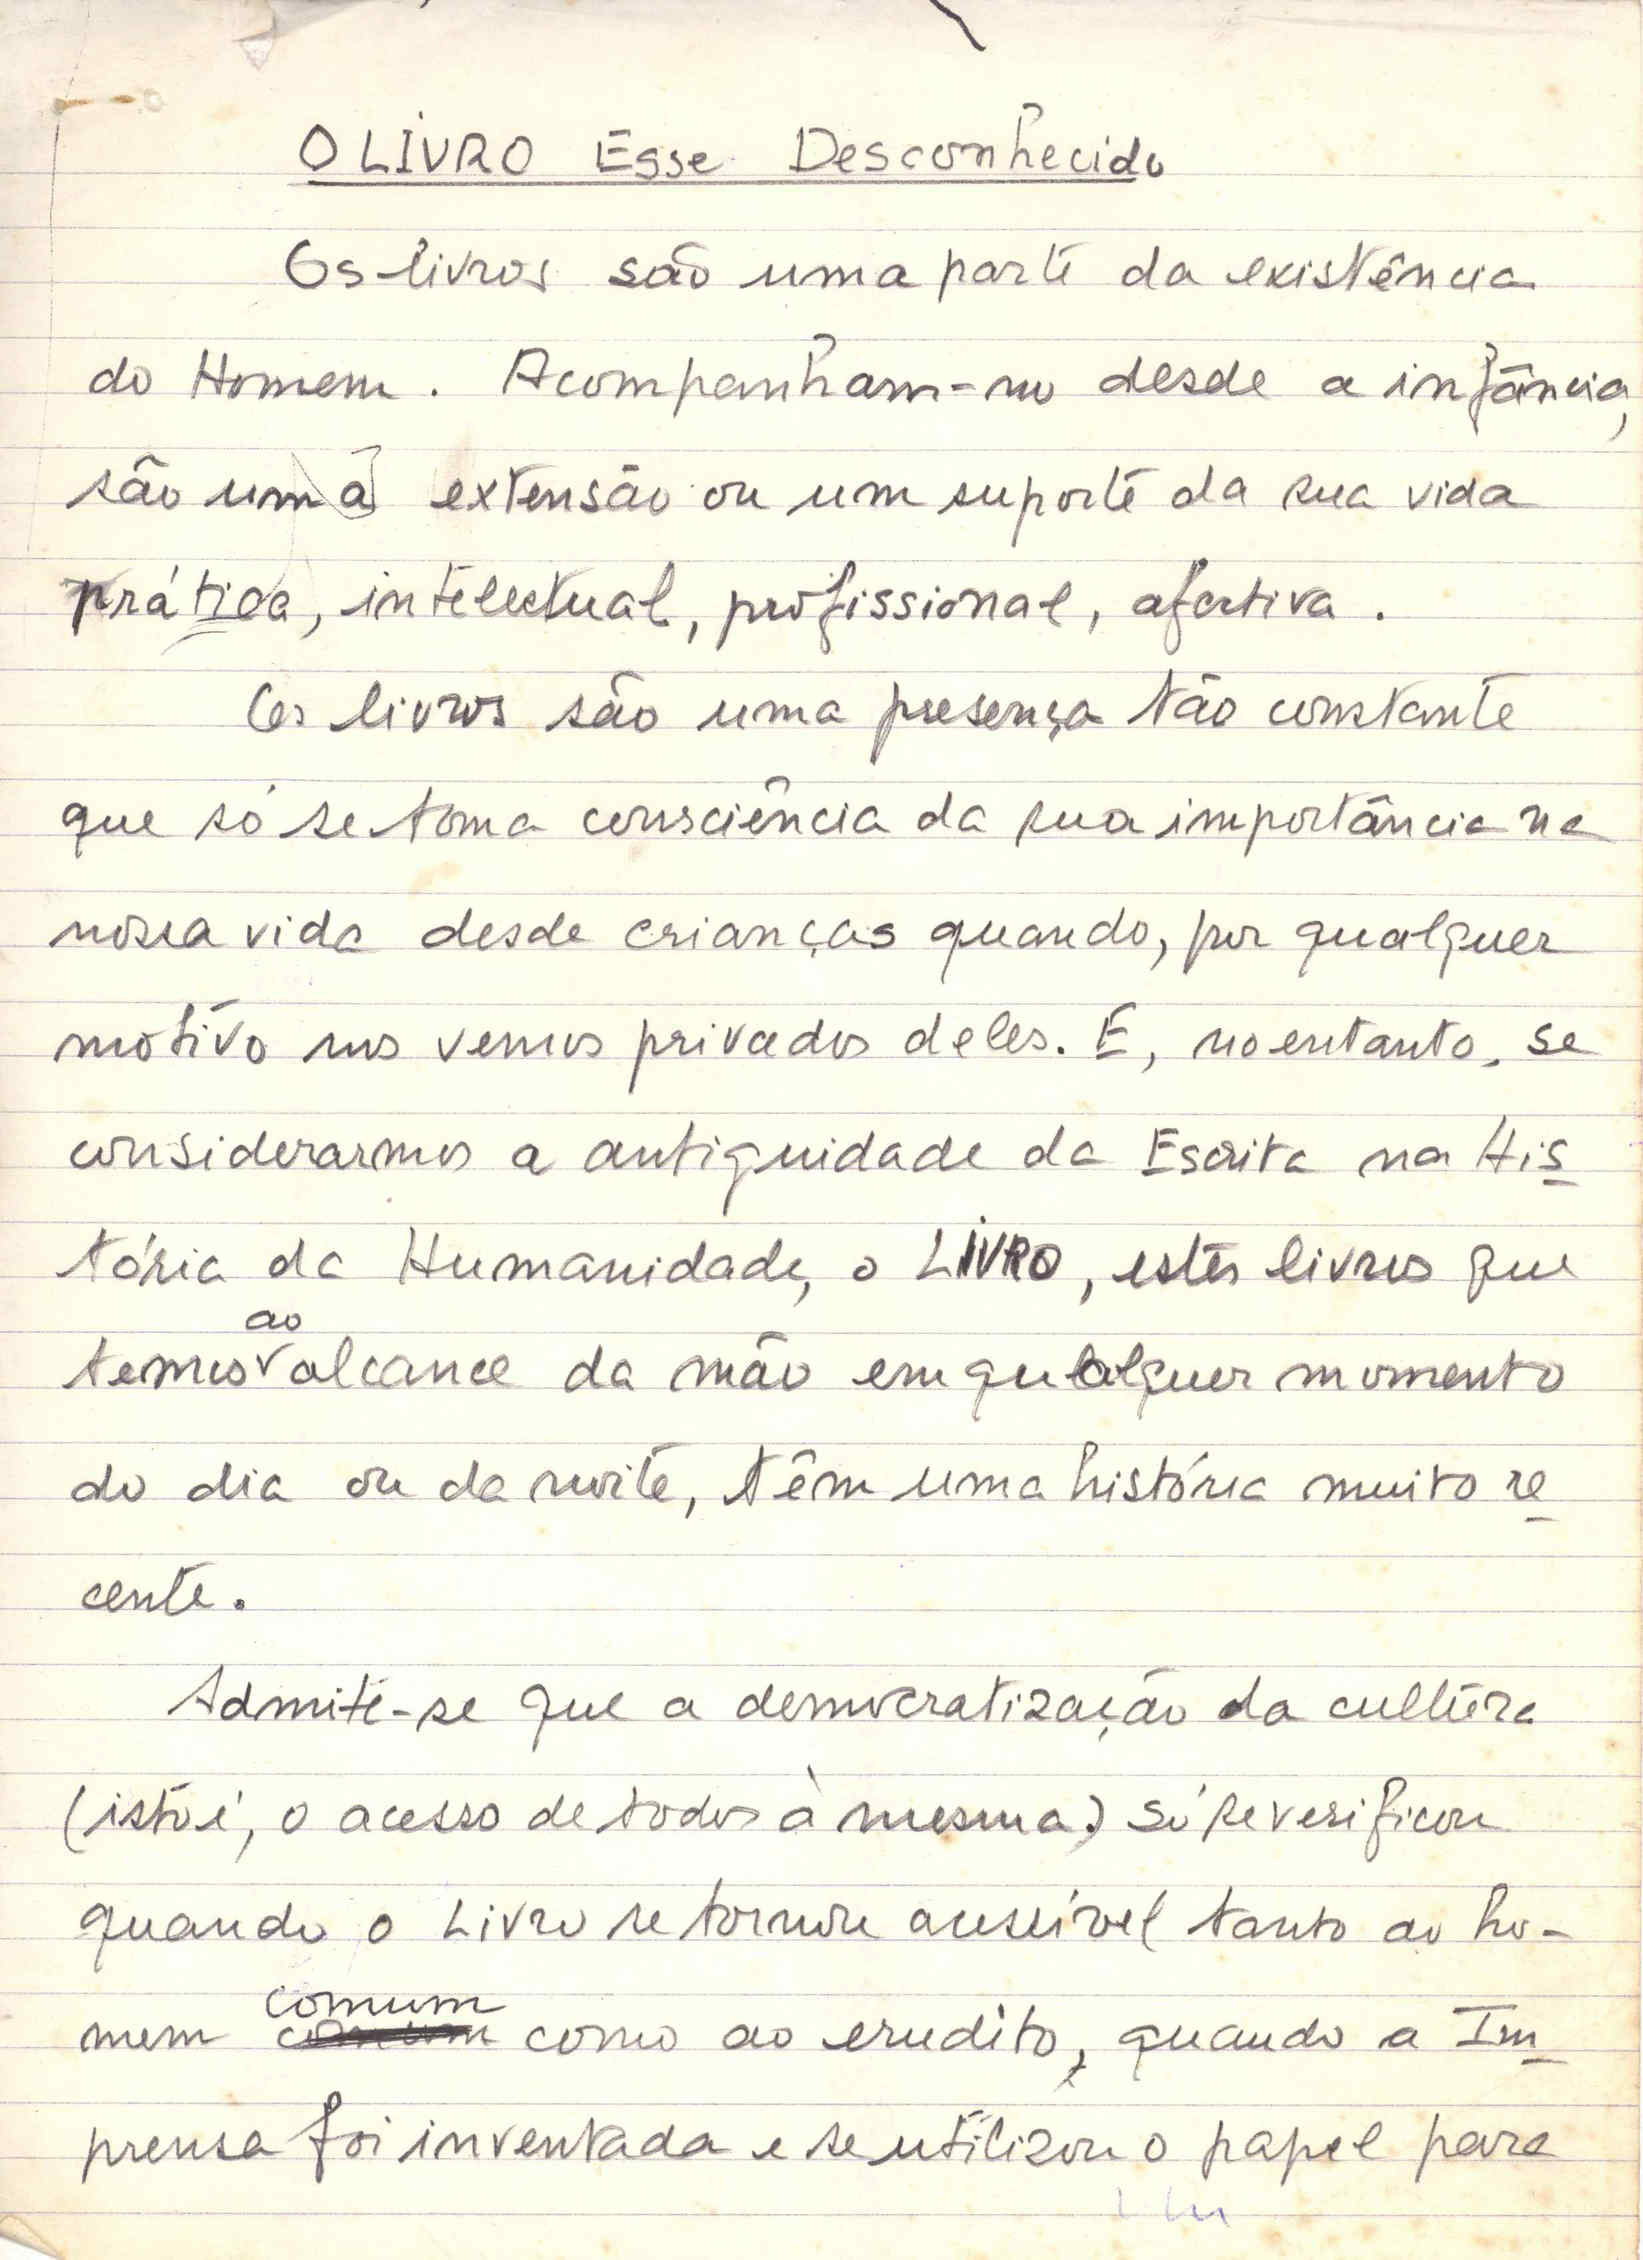 O LIVRO Esse Desconhecido
Os livros são uma parte da existência
do Homem. Acompanham-no desde a infância,
são uma extensão ou um suporte da sua vida
prática, intelectual, profissional, afectiva.
Os livros são uma presença tão constante
que só se toma consciência da sua importância na
nossa vida desde crianças quando, por qualquer
motivo nos vemos privados deles. E, no entanto, se
considerarmos a antiguidade da Escrita na His
tória da Humanidade, o LIVRO, estes livros que
ao
temos alcance da mão em qualquer momento
do dia ou da noite, têm uma história muito re
cente.
Admite-se que a democratização da cultura
(isto é, o acesso de todos à mesma) só se verificou
quando o Livro se tornou acessível tanto ao ho-
comum
mem como ao erudito, quando a Im
prensa foi inventada e se utilizou o papel para